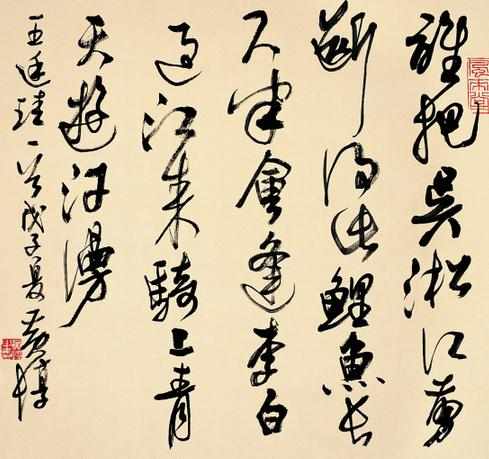 誰把吳淞江剪
斷得此鯉魚長
尺半會逢李白
過江來騎上青
天遊汗漫
王廷珪一首戊子夏黃惇